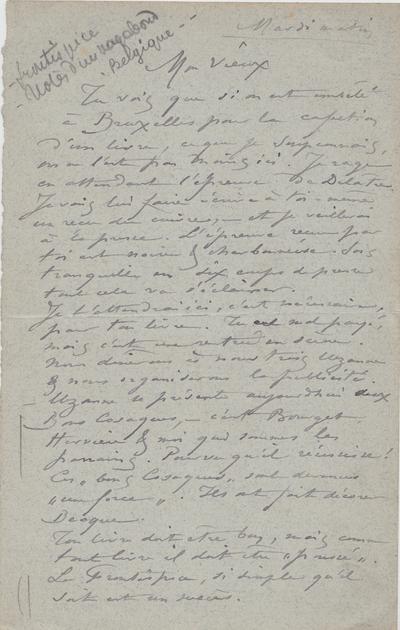 frontispice
Notes d'un vagabond
Belgique
Mardi matin
Mon Vieux
Tu vois que si on est embêté
à Bruxelles pour la
d'un livre, ce que je soupçonnais,
on ne l'est pas moins ici. Je rage
en attendant l'épreuve de Delâtre.
Je vais lui faire écrire à toi-même
un reçu du cuivre, – et je veillerai
à la presse. L'épreuve reçue par
toi est noire & charbonneuse. Sois
tranquille en dix coups de presse
tout cela va s'éclaircir.
Je t'attendrai ici, c'est nécessaire,
pour ton livre. Tu
mais c'est une rentrée en scène.
Nous dînerons à nous trois Uzanne
& nous organiserons la publicité.
– Uzanne se présente aujourd'hui aux
Bons Cosaques, – c'est Bourget
Hervieu & moi qui sommes les
parrains. Pourvu qu'il réussisse!
Ces „bons Cosaques„ sont devenus
„une force„. Ils ont fait décorer
Ton livre doit être bon, mais comme
tout livre il doit être
Le Frontispice, si simple qu'il
soit est un succès.